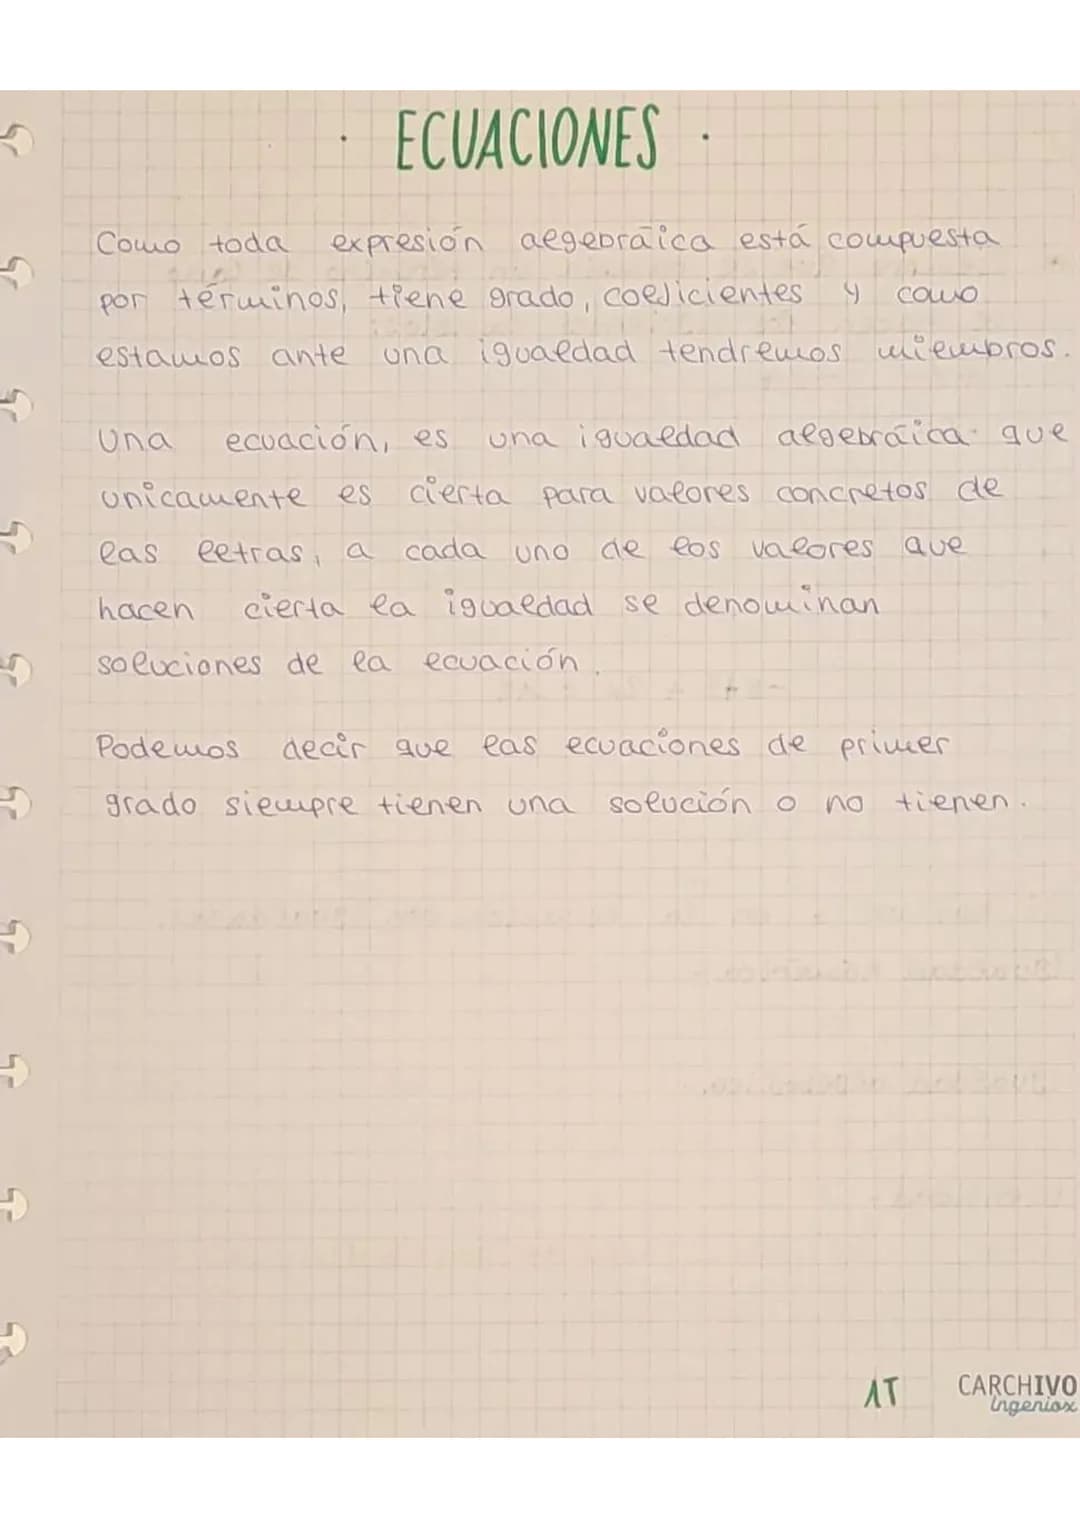 · ECUACIONES ·
Como toda expresión algebráica está compuesta
por términos, tiene grado, coeficientes y como
estamos ante una igualdad tendremos miembros.
Una ecuación, es una igualdad algebráica que
unicamente es cierta para valores concretos de
las letras, a cada uno de los valores que
hacen cierta la igualdad se denominan
soluciones de la ecuación.
Podemos decir que las ecuaciones de primer
grado siempre tienen una solución o no tienen.
1T
CARCHIVO
ingeniox